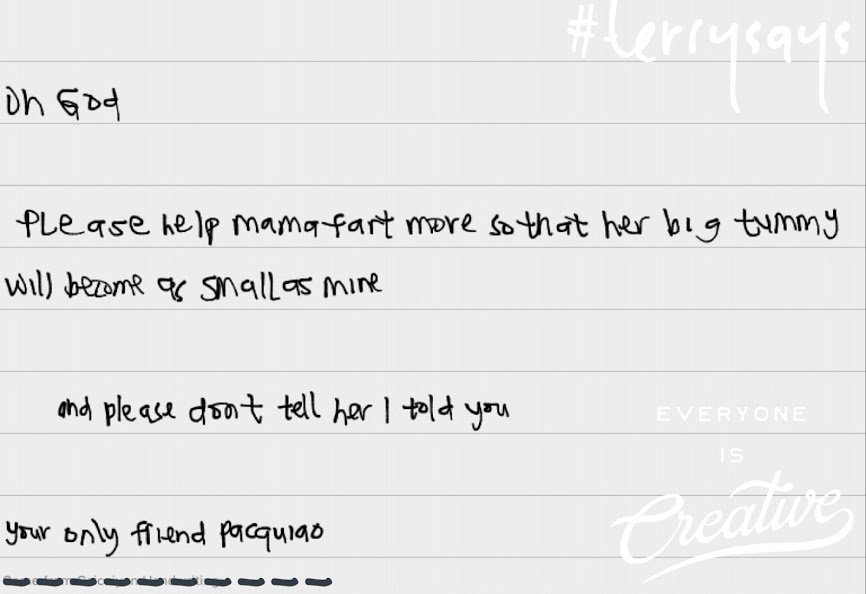 #lerrysays
Oh God
PLease help mama fart more so that her big tummy
will become as smaLL as mine
and please don't tell her I told you
EVERYONE
IS
Creative
your only friend pacquiao